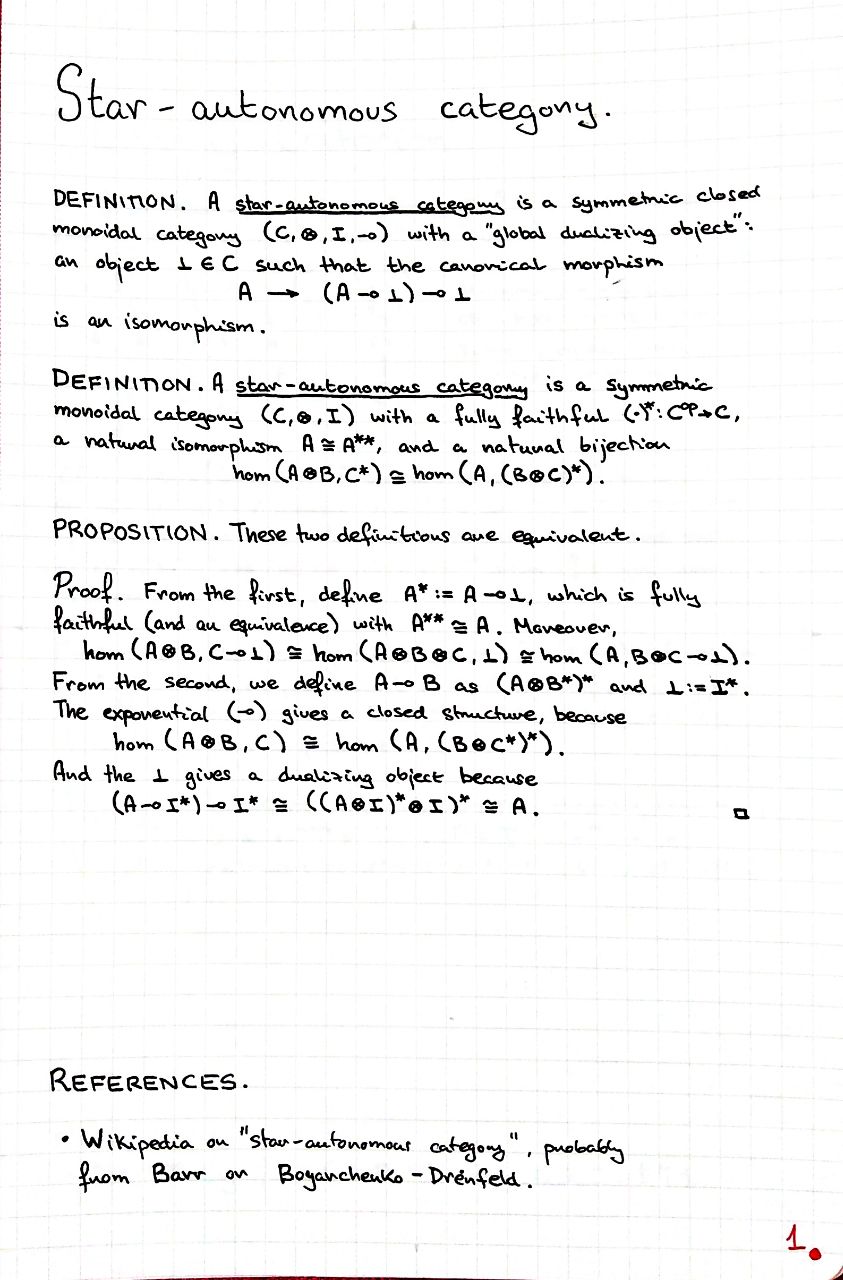 Star-autonomous category.
DEFINITION. A star-autonomous category is a symmetric closed
monoidal category (C,⊗,I,⊸) with a "global dualizing object":
an object ⊥∈C such that the canonical morphism
A → (A⊸⊥)⊸⊥
is an isomorphism.
DEFINITION. A star-autonomous category is a symmetric
monoidal category (C,⊗,I) with a fully faithful (·)*:Cᵒᵖ→C,
a natural isomorphism A≅A**, and a natural bijection
hom(A⊗B,C*)≅hom(A,(B⊗C)*).
PROPOSITION. These two definitions are equivalent.
Proof. From the first, define A*:=A⊸⊥, which is fully
faithful (and an equivalence) with A**≅A. Moreover,
hom(A⊗B,C⊸⊥)≅hom(A⊗B⊗C,⊥)≅hom(A,B⊗C⊸⊥).
From the second, we define A⊸B as (A⊗B*)* and ⊥:=I*.
The exponential (⊸) gives a closed structure, because
hom(A⊗B,C)≅hom(A,(B⊗C*)*).
And the ⊥ gives a dualizing object because
(A⊸I*)⊸I*≅((A⊗I)*⊗I)*≅A. □
REFERENCES.
• Wikipedia on "star-autonomous category", probably
from Barr or Boyarchenko-Drénfeld.
1.